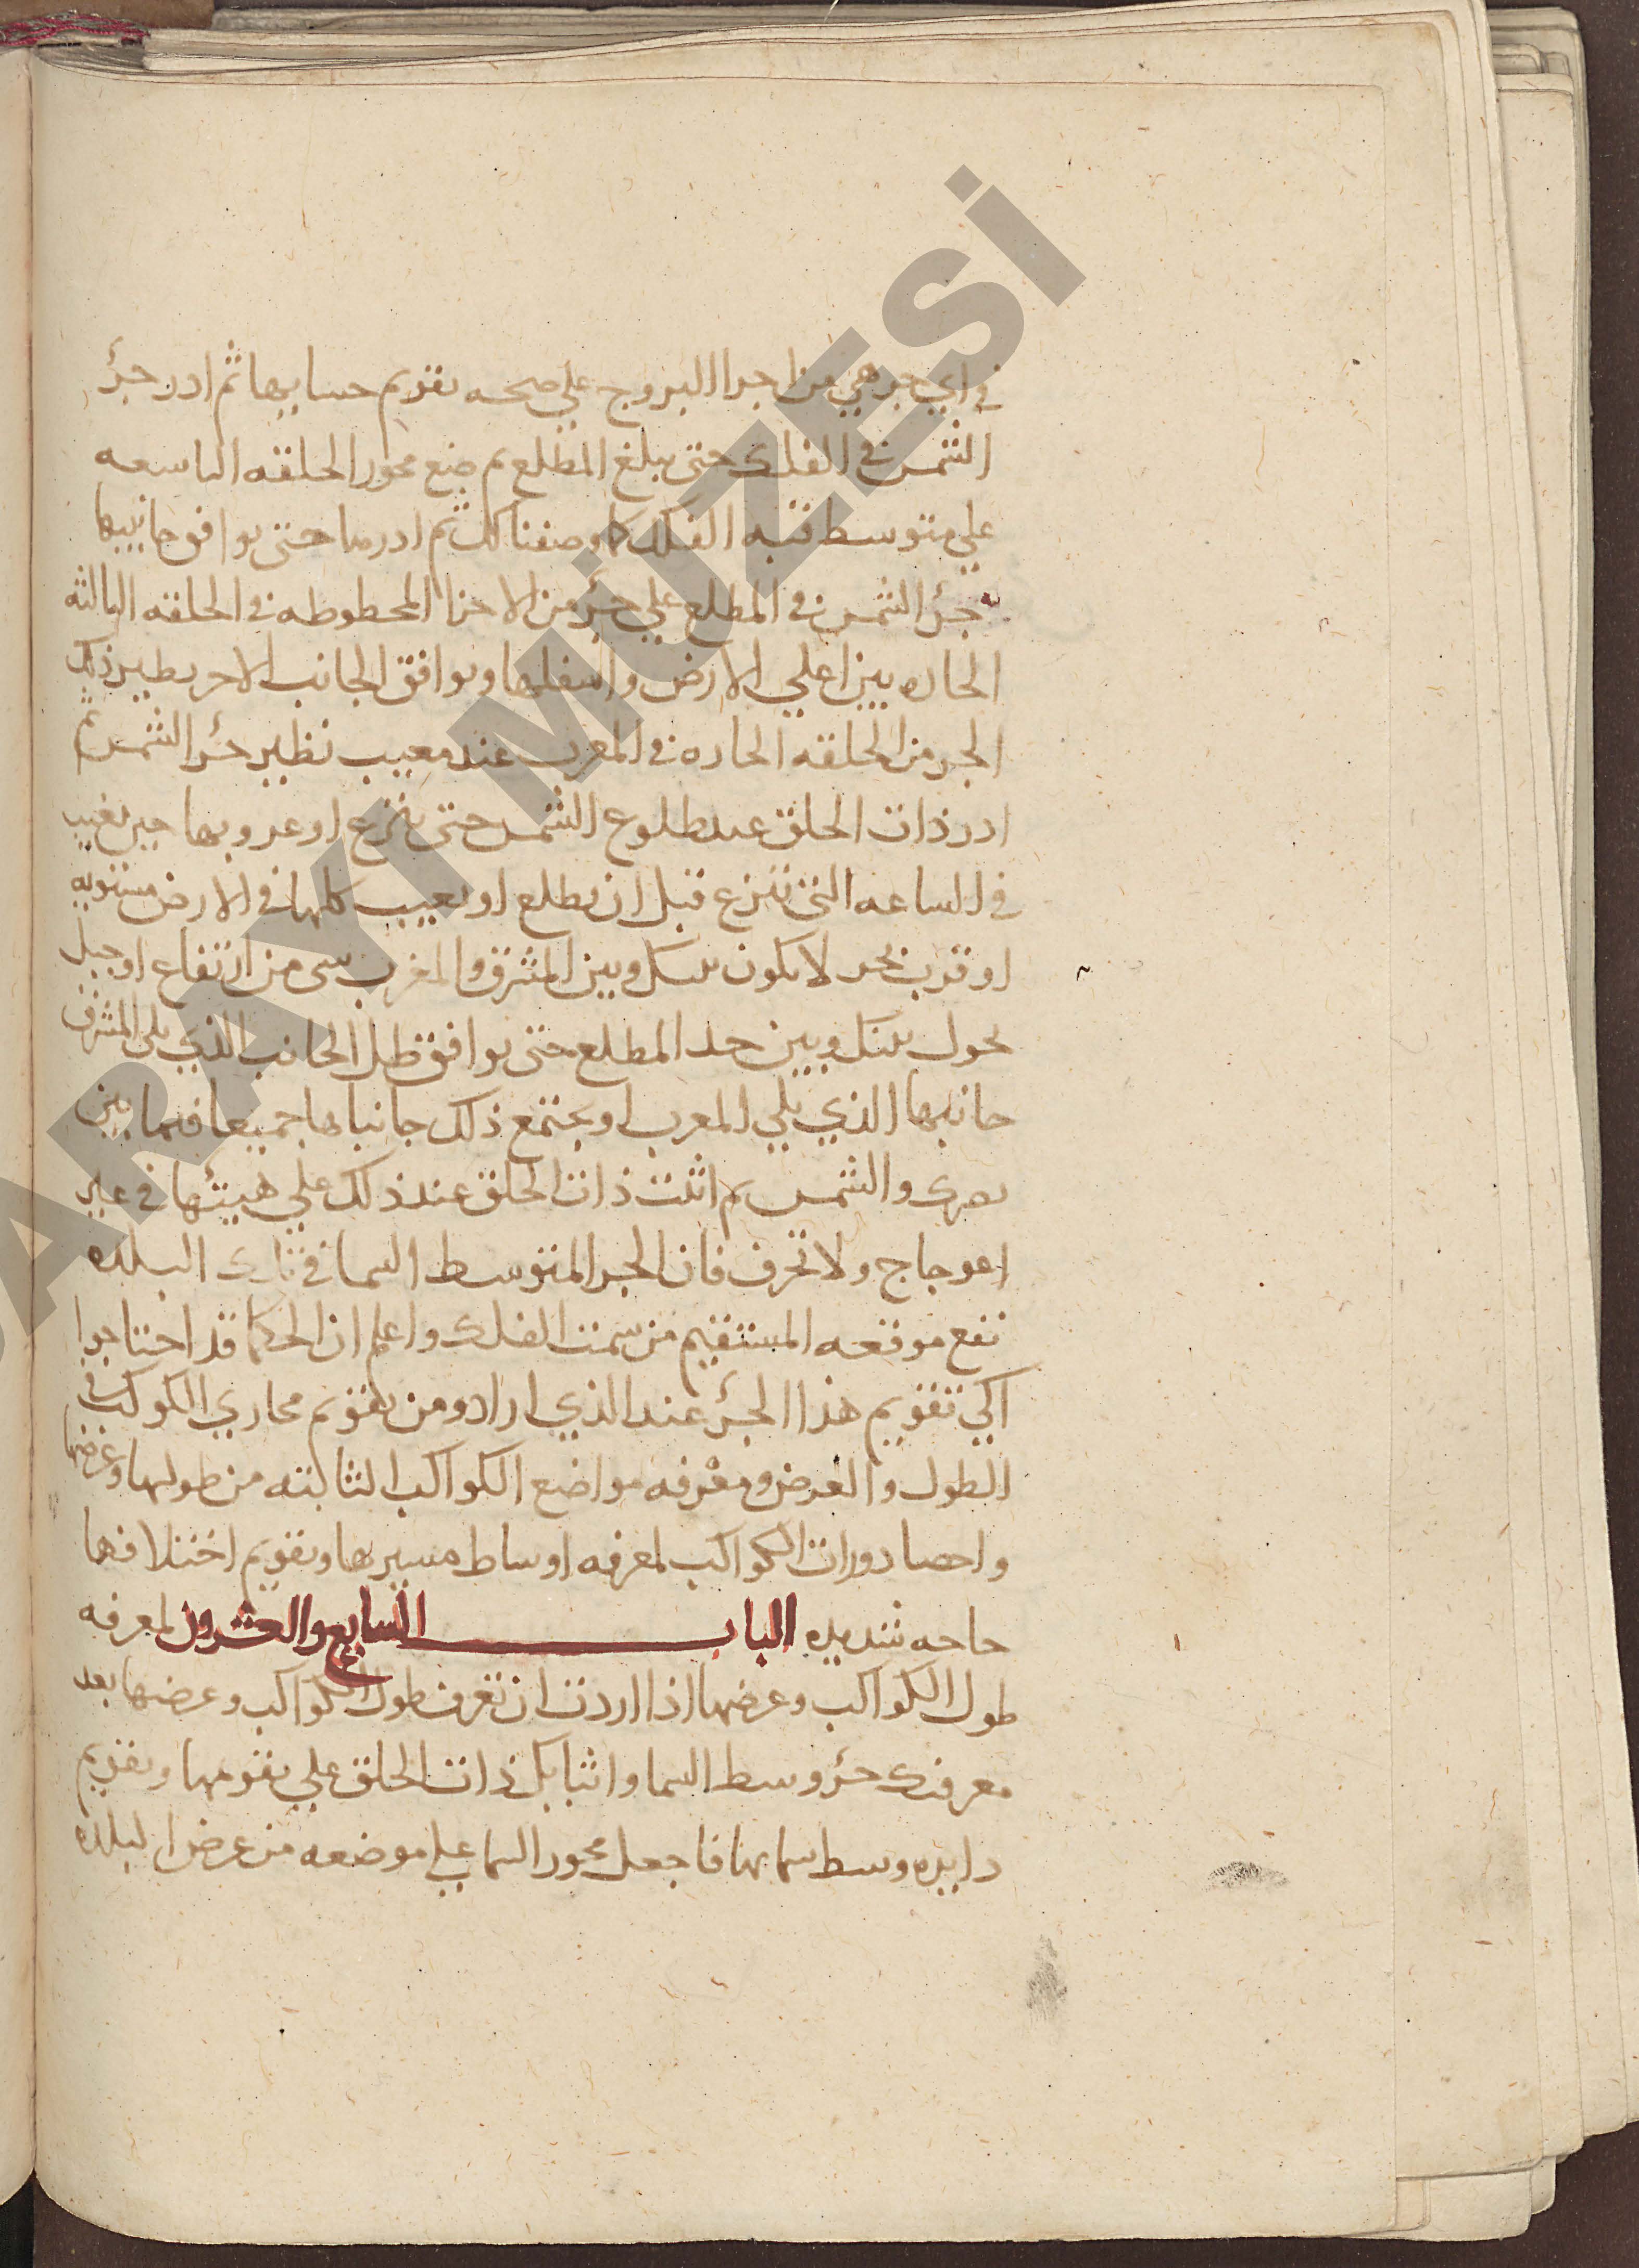 في اي جز هي من اجزا البروج علي صحه تقويم حسابها ثم ادر جزؤ
الشمس في الفلك حتى يبلغ المطلع ثم ضع محور الحلقه التاسعه
علي متوسط قبه الفلك كما وصفنا لك ثم ادرها حتى توافق جانبيها
جزؤ الشمس في المطلع علي جزؤ من الاجزا المخطوطه في الحلقه الثالثه
الحازه بين اعلي الارض واسفلها ويوافق الجانب الاخر نظير ذلك
الجز من الحلقه الحازه في المغرب عند مغيب نظير جزؤ الشمس ثم
ادر ذات الحلق عند طلوع الشمس حتى تبزغ او غروبها حين تغيب
في الساعه التي تبزغ قبل ان تطلع او تغيب كلها في الارض مستويه
او قرب بحر لا يكون بينك وبين المشرق والمغرب شي من ارتفاع او جبل
يحول بينك وبين حد المطلع حتى يوافق ظل الجانب الذي يلي المشرق
جانبها الذي يلي المغرب او يجتمع ذلك جانباها جميعا فيما بين
بصرك والشمس ثم اثبت ذات الحلق عند ذلك علي هيئتها في غير
اعوجاج ولا تحرف فان الجز المتوسط السما في تلك البلده
تقع موقعه المستقيم من سمت الفلك واعلم ان الحكما قد احتاجوا
الي تقويم هذا الجزؤ عند الذي ارادو من تقويم مجاري الكواكب في
الطول والعرض ومعرفه مواضع الكواكب الثابته من طولها وعرضها
واحصا دورات الكواكب لمعرفه اوساط مسيرها وتقويم اختلافها
حاجه شديده الباب السابع والعشرون لمعرفه
طول الكواكب وعرضها اذا اردت ان تعرف طول الكواكب وعرضها بعد
معرفتك جزؤ وسط السما واثباتك ذات الحلق علي تقويمها وتقويم
دايره وسط سمائها فاجعل محور السما علي موضعه من عرض البلده